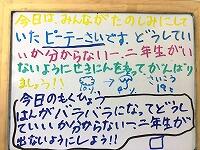 今日は、みんながたのしみにして
いたピーナーさいです。どうしてい
いか分からない一、二年生がい
ないようにせきにんをもってがんばり
ましょう!!
さいこう
19℃
今日のもくひょう
はんがバラバラになってどうして
いいか分からない一、二年生が
出ないようにしよう!!